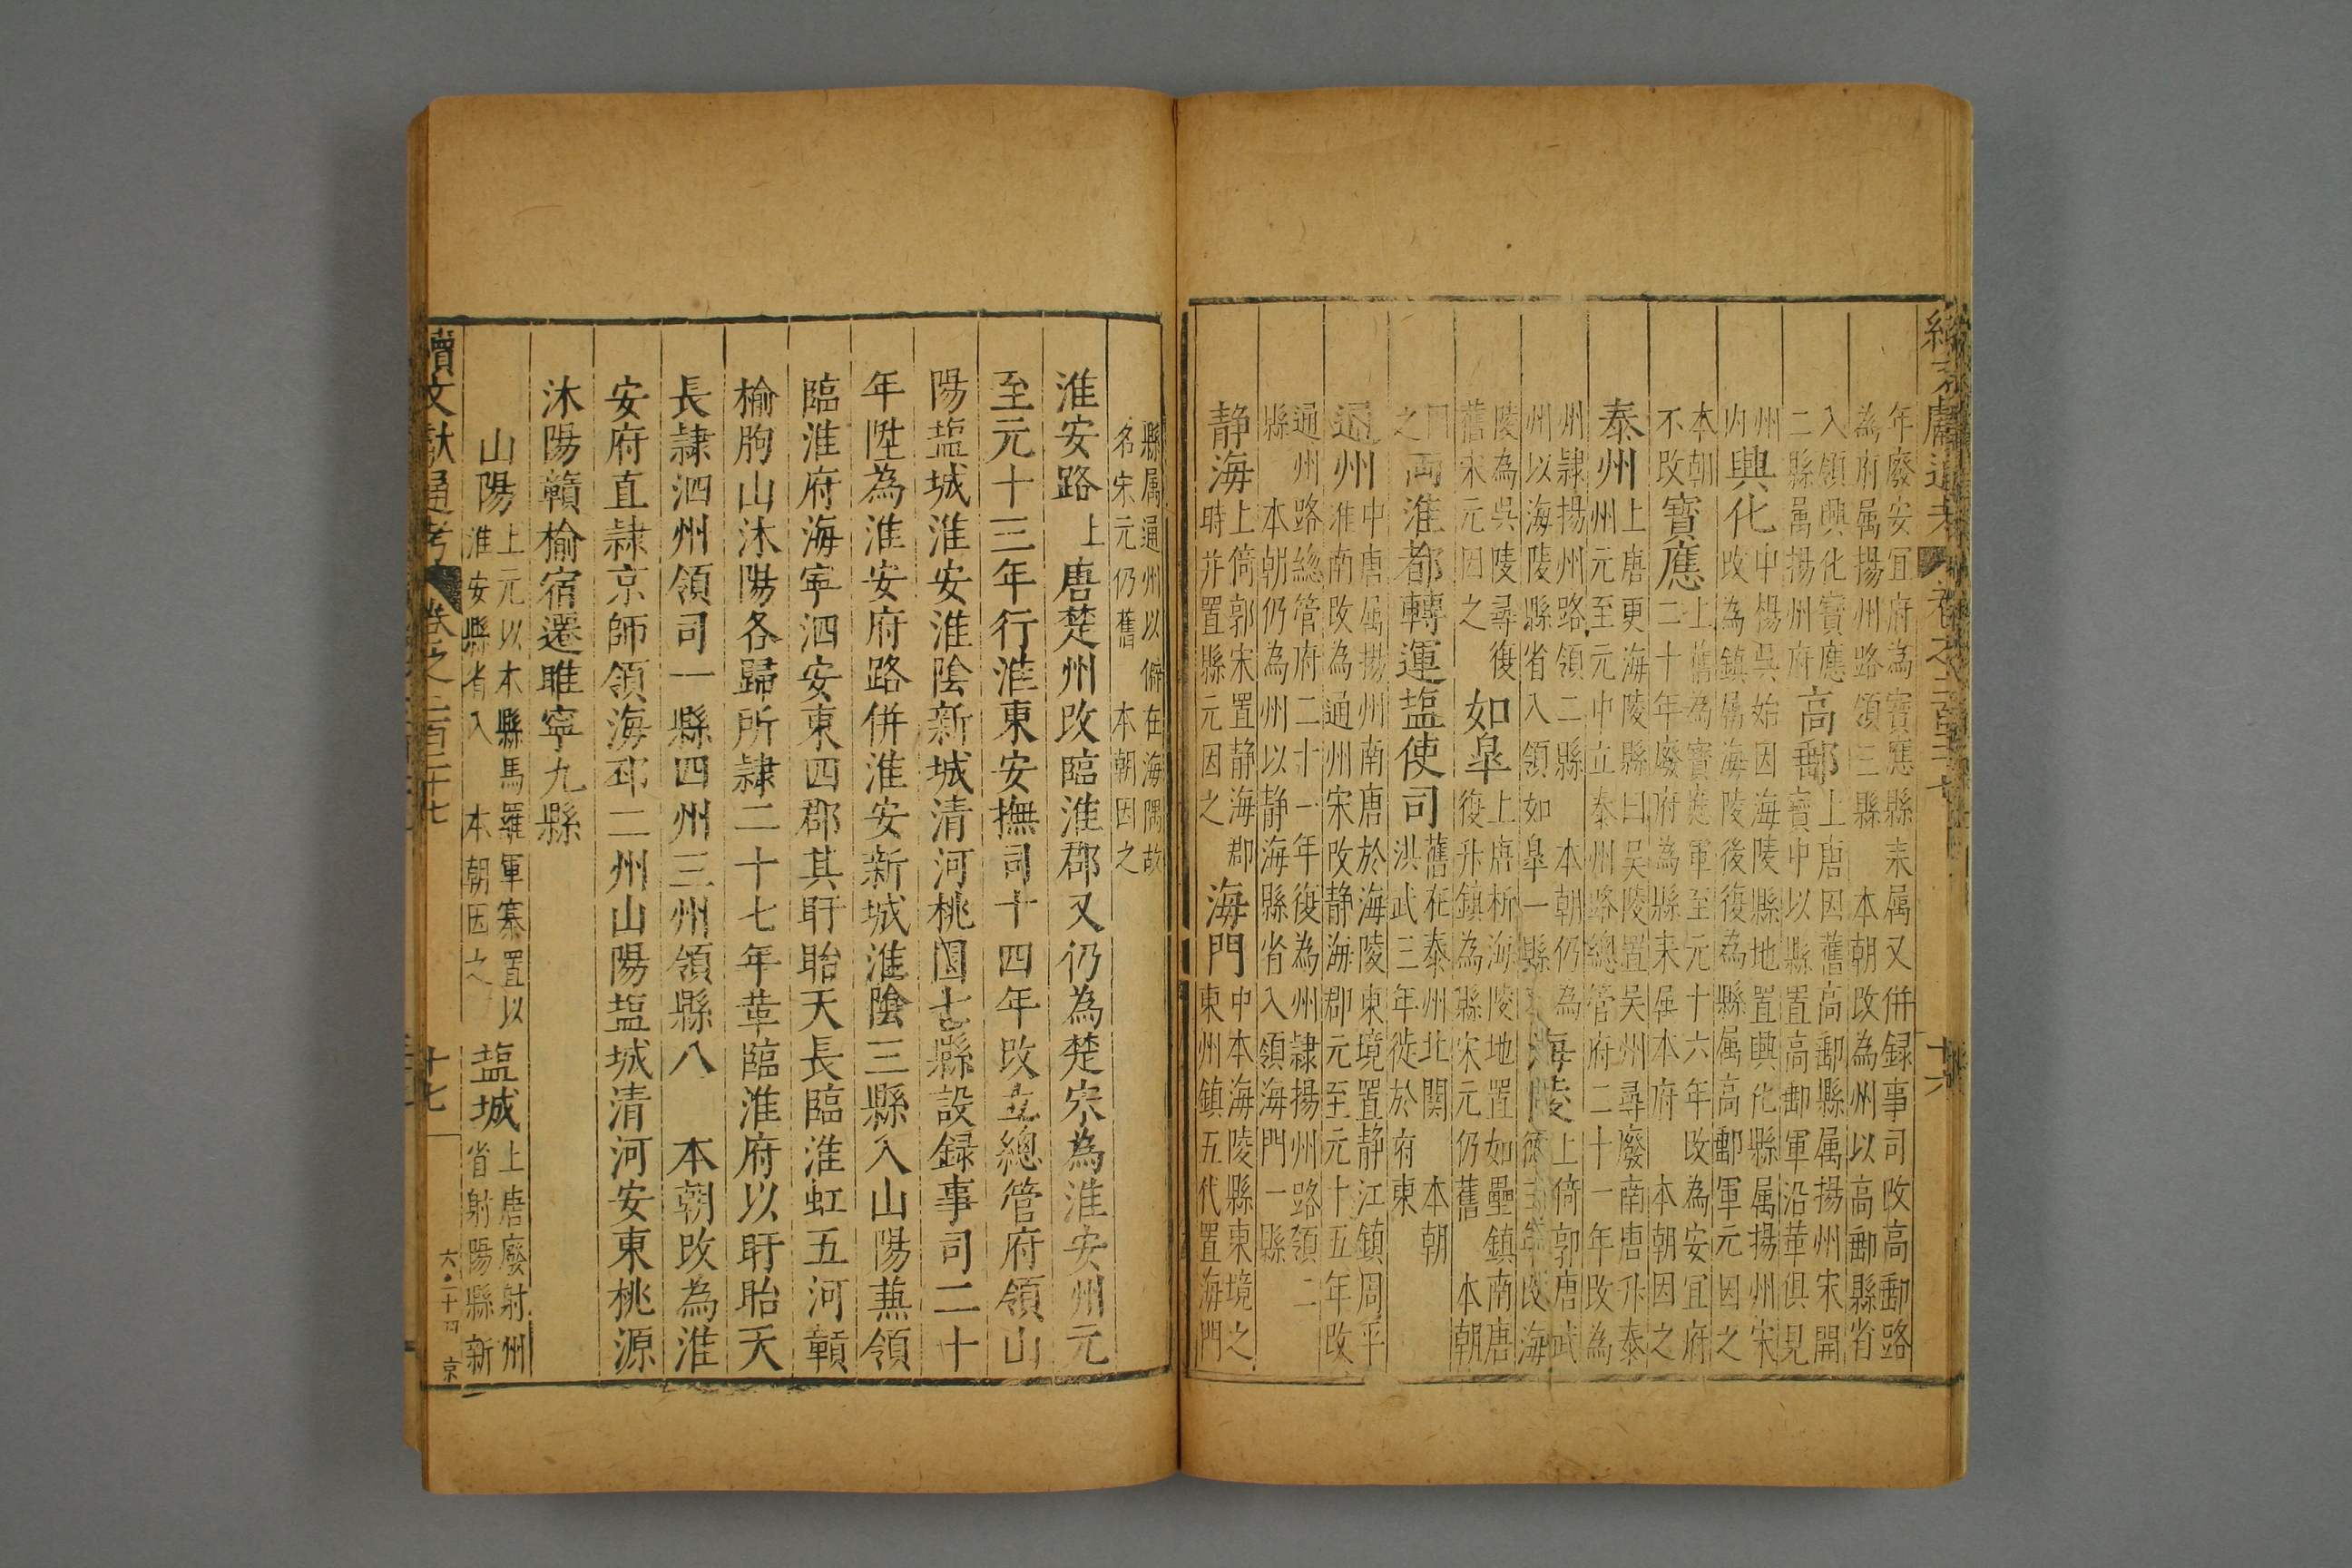 年廢安宜府為寳應縣来属又併録事司改高郵路
為府属揚州路領三縣 本朝改為州以高郵縣省
入領興化寳應 高郵 上唐因舊高郵縣属揚州宋開
二縣属揚州府 寳中以縣置高郵軍沿革俱見
州 興化 中楊呉始因海陵縣地置興化縣属揚州宋
内 改為鎮属海陵後復為縣属高郵軍元因之
本朝 寳應 上舊為寳應軍至元十六年改為安宜府
不改 二十年廢府為縣来属本府 本朝因之
泰州 上唐更海陵縣曰吴陵置吴州尋廢南唐升泰
州元至元中立泰州路總管府二十一年改為
州隷揚州路領二縣 本朝仍為 海陵 上倚郭唐武
州以海陵縣省入領如皐一縣 改海
陵為呉陵尋復 如皐 上唐析海陵地置如壘鎮南唐
舊宋元因之 復升鎮為縣宋元仍舊 本朝
因 兩淮都轉運塩使司 舊在泰州北関 本朝
之 洪武三年徙於府東
通州 中唐属揚州南唐於海陵東境置静江鎮周平
淮南改為通州宋改静海郡元至元十五年改
通州路總管府二十一年復為州隷揚州路領二
縣 本朝仍為州以静海縣省入領海門一縣
静海 上倚郭宋置静海郡 海門 中本海陵縣東境之
時并置縣元因之 東州鎮五代置海門
縣属通州以僻在海隅故
名宋元仍舊 本朝因之
淮安路 上 唐楚州改臨淮郡又仍為楚宋為淮安州元
至元十三年行淮東安撫司十四年改立總管府領山
陽塩城淮安淮陰新城清河桃園七縣設録事司二十
年陞為淮安府路併淮安新城淮陰三縣入山陽兼領
臨淮府海寧泗安東四郡其盱眙天長臨淮虹五河贛
榆朐山沐陽各歸所隷二十七年革臨淮府以盱眙天
長隷泗州領司一縣四州三州領縣八 本朝改為淮
安府直隷京師領海邳二州山陽塩城清河安東桃源
沐陽贛榆宿遷睢寧九縣
山陽 上元以本縣馬羅軍寨置以 塩城 上唐廢射州
淮安縣省入 本朝因之 省射陽縣新
續文獻通考 卷之二百二十七 十七
六●二十四 京